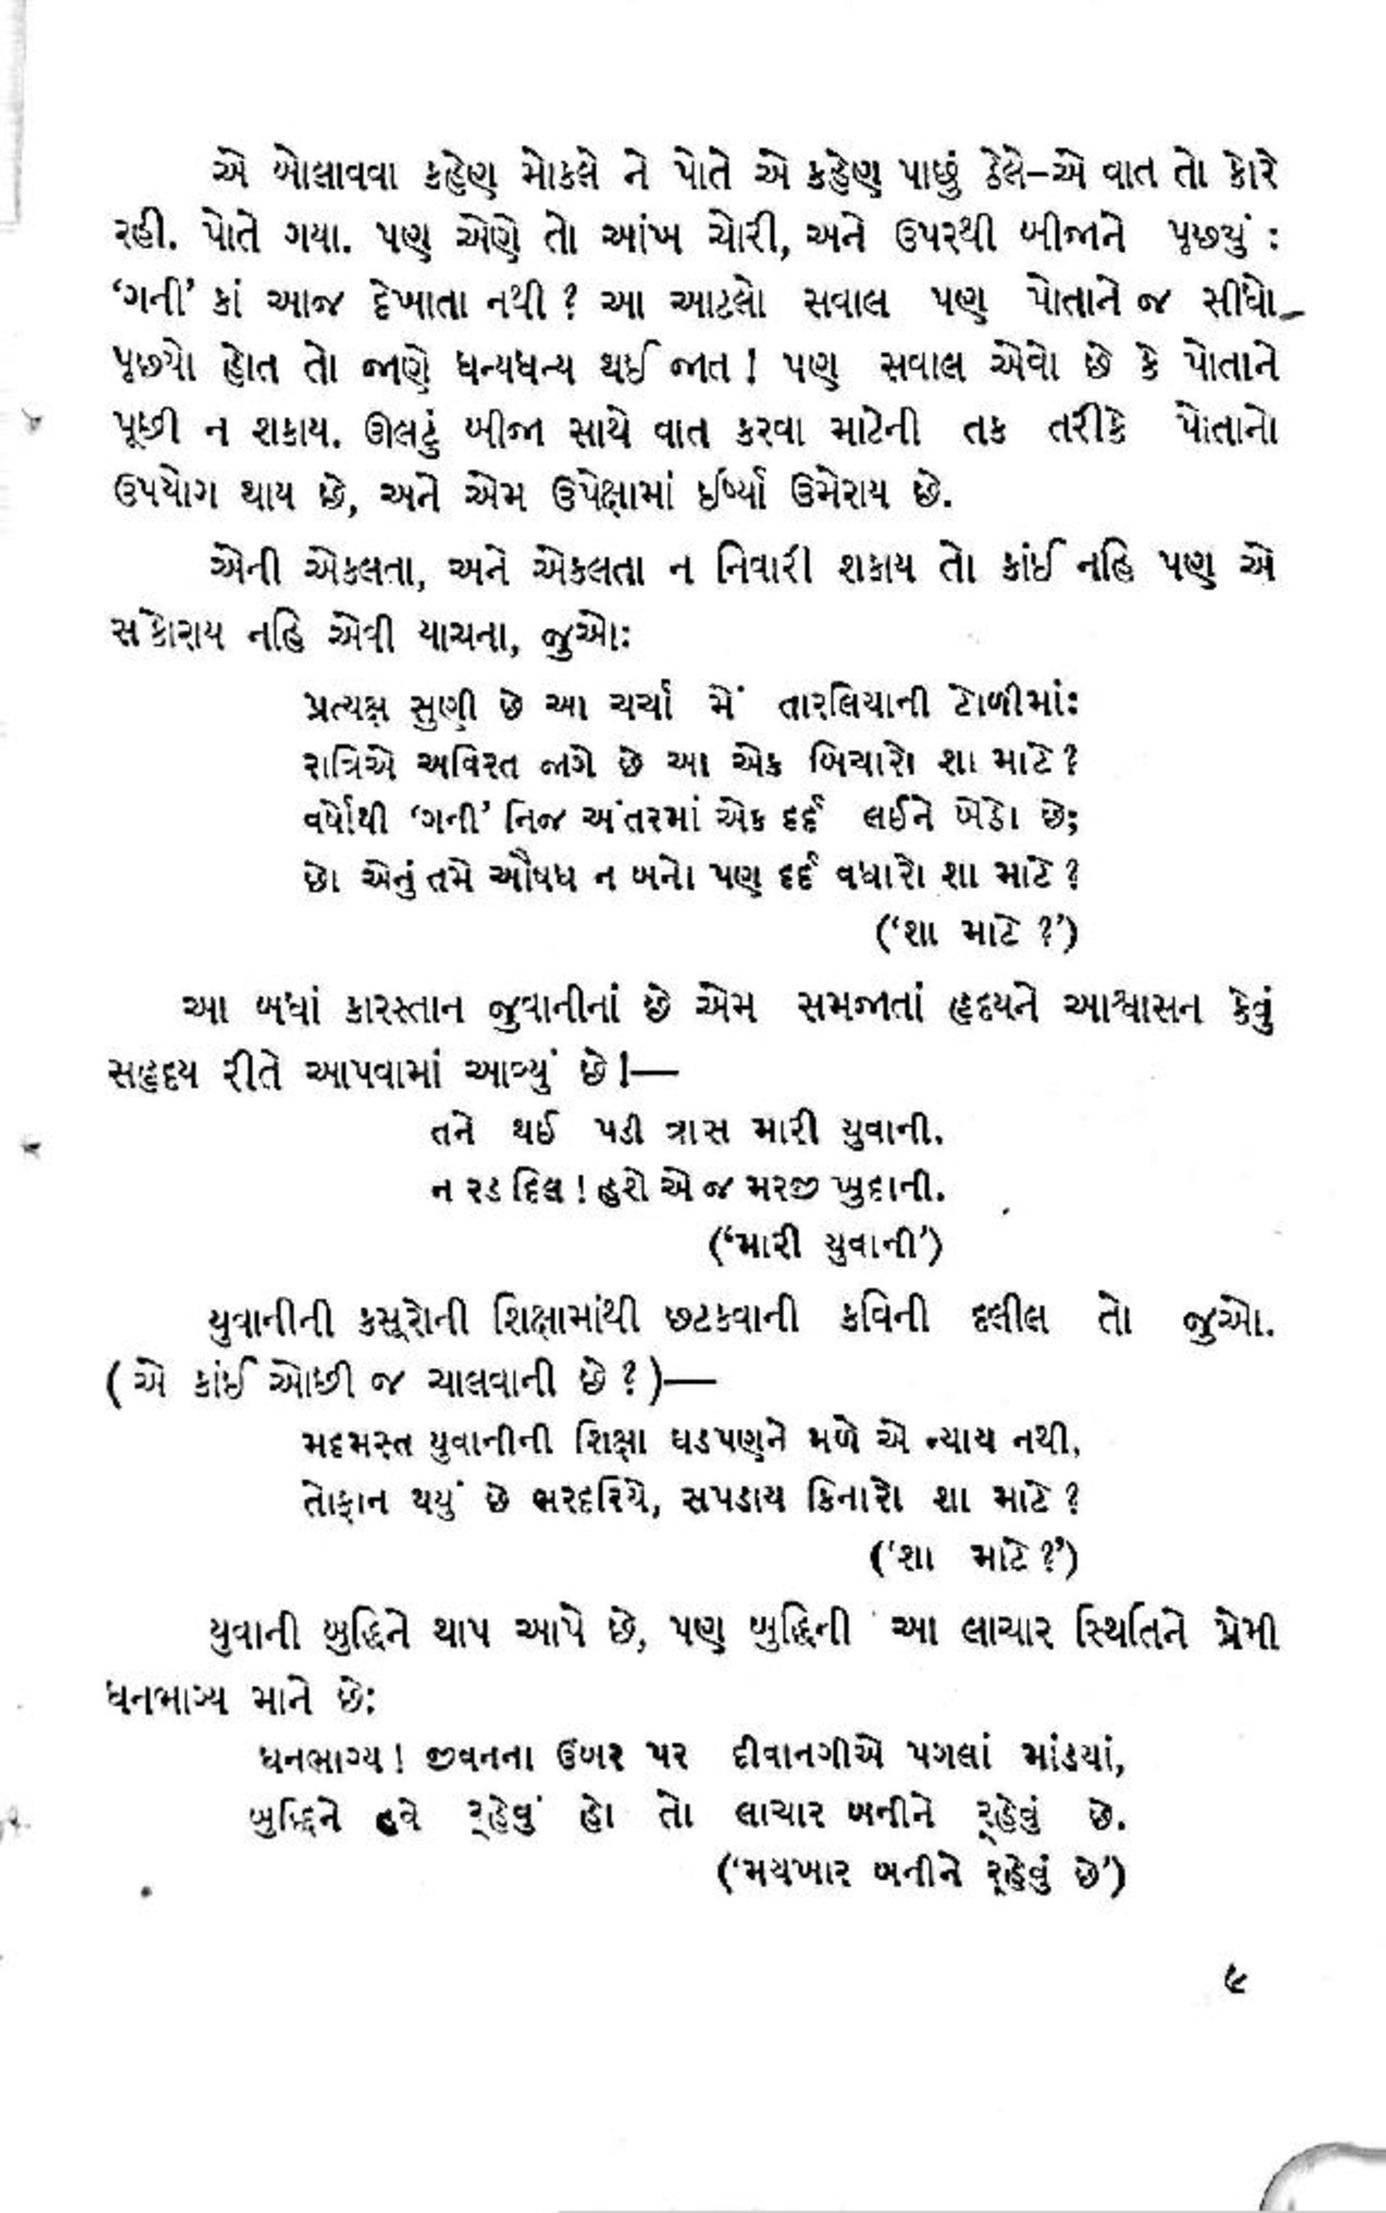 એ બોલાવવા કહેણ મોકલે ને પોતે એ કહેણ પાછું ઠેલે–એ વાત તો કોરે
રહી. પોતે ગયા. પણ એણે તો આંખ ચોરી, અને ઉપરથી બીજાને પૂછ્યું :
‘ગની’ કાં આજ દેખાતા નથી ? આ આટલો સવાલ પણ પોતાને જ સીધો
પૂછ્યો હોત તો જાણે ધન્યધન્ય થઈ જાત ! પણ સવાલ એવો છે કે પોતાને
પૂછી ન શકાય. ઊલટું બીજા સાથે વાત કરવા માટેની તક તરીકે પોતાનો
ઉપયોગ થાય છે, અને એમ ઉપેક્ષામાં ઈર્ષ્યા ઉમેરાય છે.
એની એકલતા, અને એકલતા ન નિવારી શકાય તો કાંઈ નહિ પણ એ
સકોરાય નહિ એવી યાચના, જુઓ:
પ્રત્યક્ષ સુણી છે આ ચર્ચા મેં તારલિયાની ટોળીમાં:
રાત્રિએ અવિરત જાગે છે આ એક બિચારો શા માટે ?
વર્ષોથી ‘ગની’ નિજ અંતરમાં એક દર્દ લઈને બેઠો છે;
છો એનું તમે ઔષધ ન બનો પણ દર્દ વધારો શા માટે ?
(‘શા માટે ?’)
આ બધાં કારસ્તાન જુવાનીનાં છે એમ સમજાતાં હૃદયને આશ્વાસન કેવું
સહૃદય રીતે આપવામાં આવ્યું છે !—
તને થઈ પડી ત્રાસ મારી યુવાની.
ન રડ દિલ ! હશે એ જ મરજી ખુદાની.
(‘મારી યુવાની’)
યુવાનીની કસૂરોની શિક્ષામાંથી છટકવાની કવિની દલીલ તો જુઓ.
(એ કાંઈ ઓછી જ ચાલવાની છે ?)—
મદમસ્ત યુવાનીની શિક્ષા ઘડપણને મળે એ ન્યાય નથી,
તોફાન થયું છે ભરદરિયે, સપડાય કિનારો શા માટે ?
(‘શા માટે ?’)
યુવાની બુદ્ધિને થાપ આપે છે, પણ બુદ્ધિની આ લાચાર સ્થિતિને પ્રેમી
ધનભાગ્ય માને છે:
ધનભાગ્ય ! જીવનના ઉંબર પર દીવાનગીએ પગલાં માંડયાં,
બુદ્ધિને હવે ર્‌હેવું હો તો લાચાર બનીને ર્‌હેવું છે.
(‘મયખાર બનીને ર્‌હેવું છે’)
૯